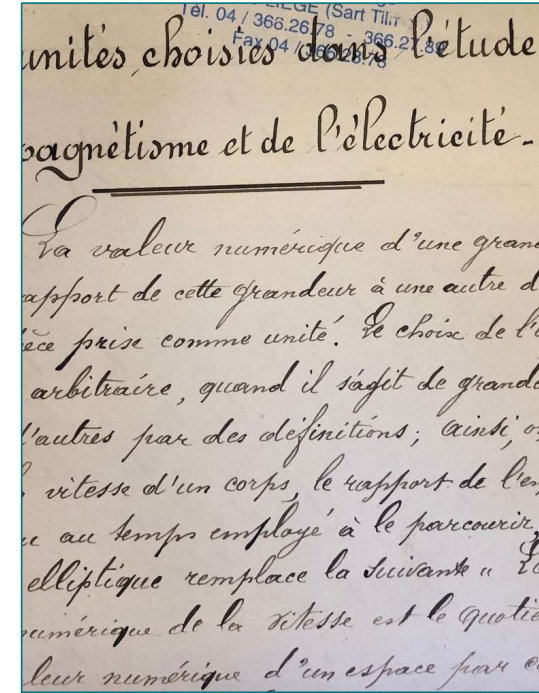 LIEGE (Sart Til
Tél. 04 / 366.26.78 - 366.27.
Fax 04 /
unités choisies dans l'étude
agnètisme et de l'électricité.
La valeur numérique d'une gran
apport de cette grandeur à une autre d
èce prise comme unité. Le choix de l'
arbitraire, quand il s'agit de grand
l'autres par des définitions; ainsi, o
vitesse d'un corps, le rapport de l'e
u au temps employé à le parcourir,
elliptique remplace la suivante "
umérique de la vitesse est le quoti
leur numérique d'un espace par c